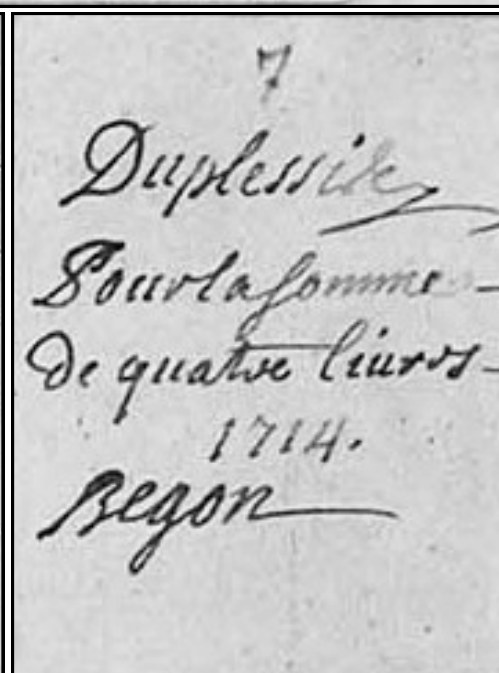 7
Duplessis
Pour la somme
de quatre liures
1714.
Begon